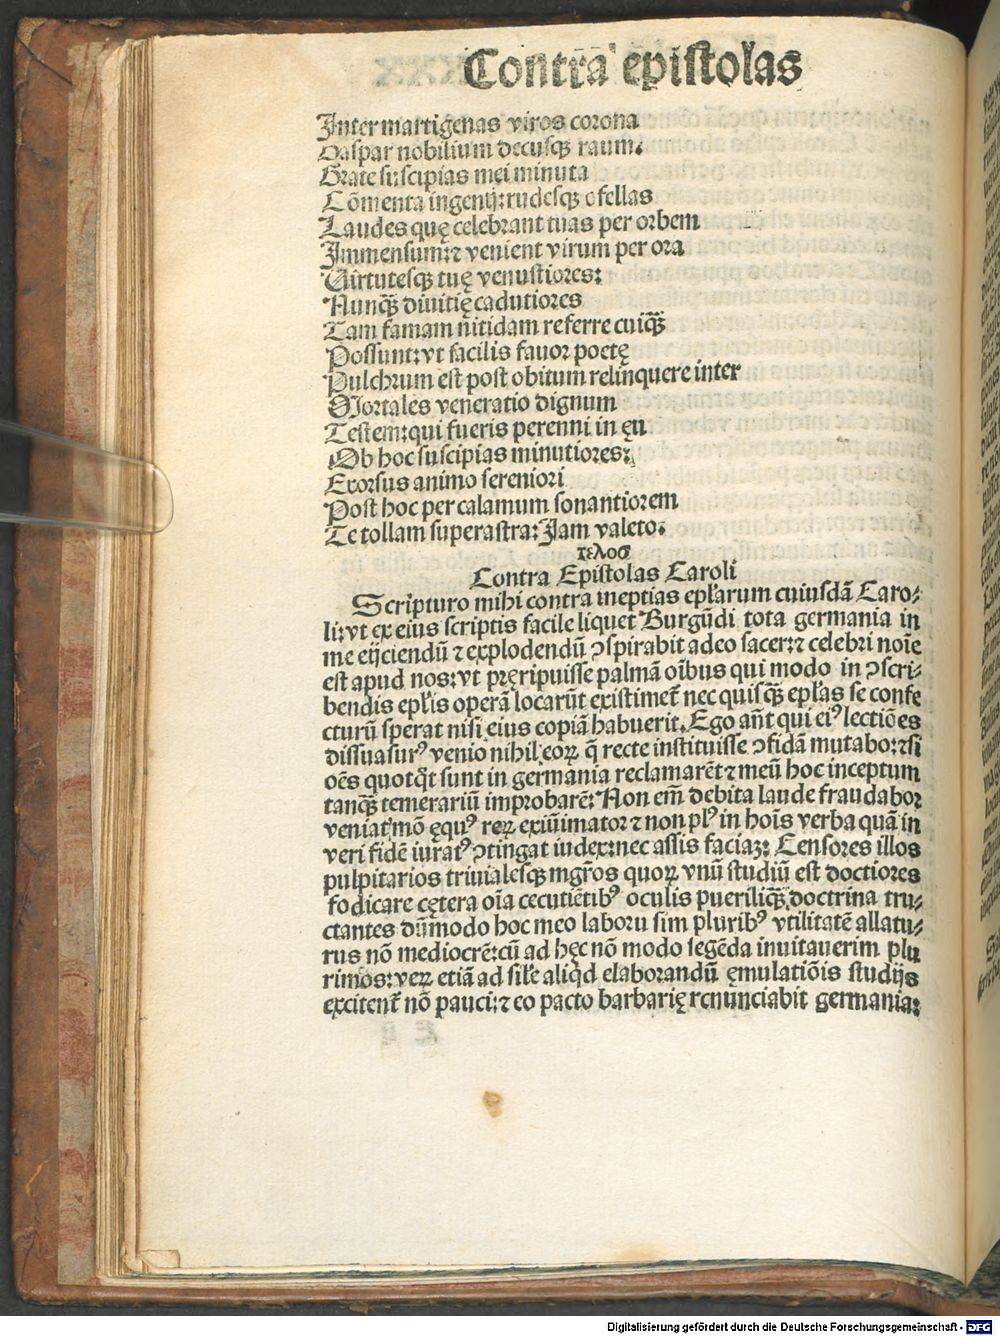 Contra epistolas
Inter martigenas viros corona
Gaspar nobilium decusqȝ raum.
Grate suscipias mei minuta
Cōmenta ingenij:rudesqȝ ofellas
Laudes quę celebrant tuas per orbem
Immensum:⁊ venient virum per ora
Uirtutesqȝ tuę venustiores:
Nunqȝ̄ diuitię cadutiores
Tam famam nitidam referre cuiqȝ̄
Possunt:vt facilis fauor poetę
Pulchrum est post obitum relinquere inter
Mortales veneratio dignum
Testem:qui fueris perenni in ęu
Ob hoc suscipias minutiores:
Exorsus animo sereniori
Post hoc per calamum sonantiorem
Te tollam super astra:Jam valeto:
τελοσ
Contra Epistolas Caroli
Scripturo mihi contra ineptias ep̄larum cuiusdā Caro⸗
li:vt ex eius scriptis facile liquet Burgūdi tota germania in
me eijciendū ⁊ explodendū ꝯspirabit adeo sacer:⁊ celebri noīe
est apud nos:vt pręripuisse palmā oībus qui modo in ꝯscri⸗
bendis ep̄lis operā locarūt existimet̄ nec quisqȝ̄ ep̄las se confe
cturū sperat nisi eius copiā habuerit. Ego aūt qui eiꝰ lectiōes
dissuasurꝰ venio nihil eoꝝ q̄ recte instituisse ꝯfidā mutabo:⁊si
oēs quotq̄t sunt in germania reclamarēt ⁊ meū hoc inceptum
tanqȝ̄ temerariū improbarēt Non em̄ debita laude fraudabor
veniat mō ęquꝰ reꝝ existimator ⁊ non plꝰ in hoīs verba quā in
veri fidē iuratꝰ ꝯtingat iudex:nec assis faciaȝ: Censores illos
pulpitarios trivialesqȝ mgros quoꝝ vnū studiū est doctiores
fodicare cętera oīa cecutiētibꝰ oculis puerilisqȝ doctrina tru⸗
ctantes dūmodo hoc meo laboru sim pluribꝰ vtilitatē allatu⸗
rus nō mediocrē:cū ad hęc nō modo legēda inuitauerim plu
rimos:veꝝ etiā ad sil̄e aliqd̄ elaborandū ęmulatiōis studijs
excitent̄ nō pauci:⁊ eo pacto barbarię renunciabit germania:
Digitalisierung gefördert durch die Deutsche Forschungsgemeinschaft - DFG